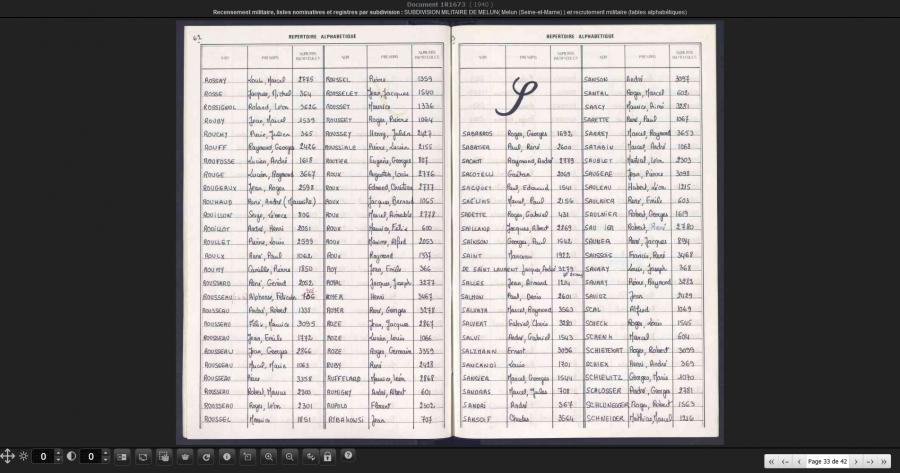 Document 1R1673 ( 1940 )
Recensement militaire, listes nominatives et registres par subdivision : SUBDIVISION MILITAIRE DE MELUN( Melun (Seine-et-Marne) ) et recrutement militaire (tables alphabétiques)
62
REPERTOIRE ALPHABÉTIQUE
NOM PRÉNOMS NUMÉROS MATRICULES NOM PRÉNOMS NUMÉROS MATRICULES
ROSSAY Louis, Marcel 2775 ROUSSEL Pierre 1359
ROSSE Jacques, Michel 364 ROUSSELET Jean, Jacques 1540
ROSSIGNOL Roland, Léon 3626 ROUSSET Maurice 1336
ROUBY Jean, Marcel 2539 ROUSSEY Roger, Pierre 1064
ROUCHY Pierre, Julien 365 ROUSSEY Henry, Julien 2427
ROUFF Raymond, Georges 2426 ROUSSIALE Pierre, Lucien 2155
ROUFOSSE Lucien, André 1618 ROUTIER Eugène, Georges 807
ROUGE Lucien, Raymond 3667 ROUX Augustin, Louis 2776
ROUGEAUX Jean, Roger 2598 ROUX Edmond, Christian 2777
ROUHAUD René, André ROUX Jacques, Bernard 1065
ROUILLON Serge, Léonce 806 ROUX Marcel, Aimable 2778
ROUILLOT André, Henri 2051 ROUX Maurice, Félix 600
ROULLET Pierre, Louis 2599 ROUX Maxime, Alfred 2053
ROULX René, Paul 1062 ROUX Raymond 1337
ROUMY Camille, Pierre 1850 ROY Jean, Emile 366
ROUSSARD René, Gérard 2052 ROYAL Jacques, Joseph 3277
ROUSSEAU Alphonse, Félicien ROYER Henri 3467
ROUSSEAU André, Robert 1335 ROYER René, Georges 3278
ROUSSEAU Félix, Maurice 3095 ROZE Jean, Jacques 2867
ROUSSEAU Jean, Emile 1772 ROZE Lucien, Louis 1066
ROUSSEAU Jean, Georges 2866 ROZE Roger, Germain 3359
ROUSSEAU Marcel, Marin 1063 RUBY René 2428
ROUSSEAU 3358 RUFFELARD Maurice, Léon 2868
ROUSSEAU Robert, Marius 2300 RUMIGNY André, Albert 601
ROUSSEAU Roger, Léon 2301 RUPOLO Florent 2302
ROUSSEL Maurice 1851 RYBAKOWSI Jean 707
REPERTOIRE ALPHABÉTIQUE
NOM PRÉNOMS NUMÉROS MATRICULES NOM PRÉNOMS NUMÉROS MATRICULES
S
SANSON André 3097
SANTAL Roger, Marcel 602
SARCY Maurice, Aimé 3281
SARETTE René, Paul 1067
SABARROS Roger, Georges 1692 SARREY Marcel, Raymond 3653
SABATIER Paul, René 2600 SATABIN Marcel, André 1068
SACHOT Raymond, André 2779 SAUBLET Marcel, Léon 2303
SACOTELLI Gaëtan 2069 SAUGERE Jean, Pierre 3098
SACQUET Paul, Edouard 1541 SAULEAU Hubert, Léon 1215
SAELINS Marcel, Paul 2156 SAULNIER René, Emile 603
SAGETTE Roger, Gabriel 431 SAULNIER Robert, Georges 1619
SAILLAND Jacques, Albert 2869 Robert, René 2780
SAISSON Georges, Paul 1542 SAUNER René, Jacques 894
SAINT 1922 SAUSSOIS Francis, René 3468
DE SAINT LAURENT Jacques, André 3279 SAVARY Louis, Joseph 368
SALLES Jean, Armand SAVARY Pierre, Raymond 3282
SALMON Paul, Denis 2601 SAVIOZ Jean 2429
SALVAYA Marcel, Raymond 3563 SCAL Alfred 1069
SALVERT Gabriel, Clovis 3280 SCHECK Roger, Louis 1505
SALVI André, Gabriel 1543 SCHENK Marcel 604
SALZMANN Ernest 3096 SCHIETEKAT Roger, Robert 3099
SANCANDI Louis 1701 SCHIEX Henri, André 369
SANGIER Marcel, Georges 1544 SCHIEWITZ Georges, Marie 1070
SANDRAS Marcel, Jules 708 SCHLOSSER André, Georges 2781
SANDRÉ André 367 SCHLUNEGGER Roger, Robert 1563
SANSOLF Charles 3564 SCHNEIDER Mathias, Marcel 1216
0 0
Page 33 de 42